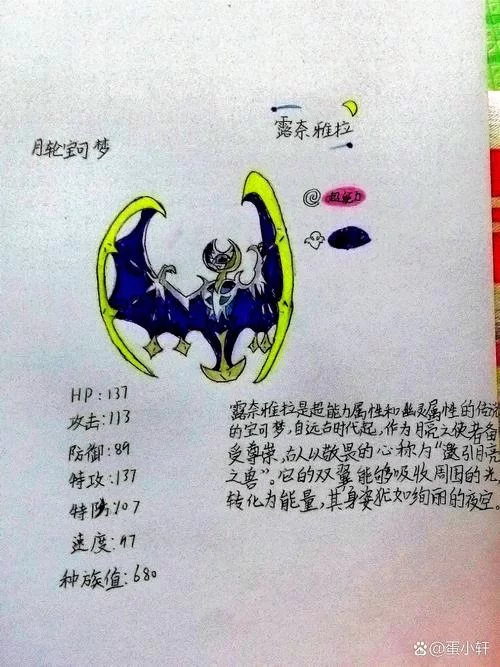 露奈雅拉
月轮宝可梦
超能力
HP：137
攻击：113
防御：89
特攻：137
特防：107
速度：97
种族值：680
露奈雅拉是超能力属性和幽灵属性的传说
的宝可梦，自远古时代起，作为月亮之使者备
受尊崇，古人以敬畏的心称为“邀引月亮
之兽”。它的双翼能够吸收周围的光，
转化为能量，其身姿犹如绚丽的夜空。
@蛋小轩